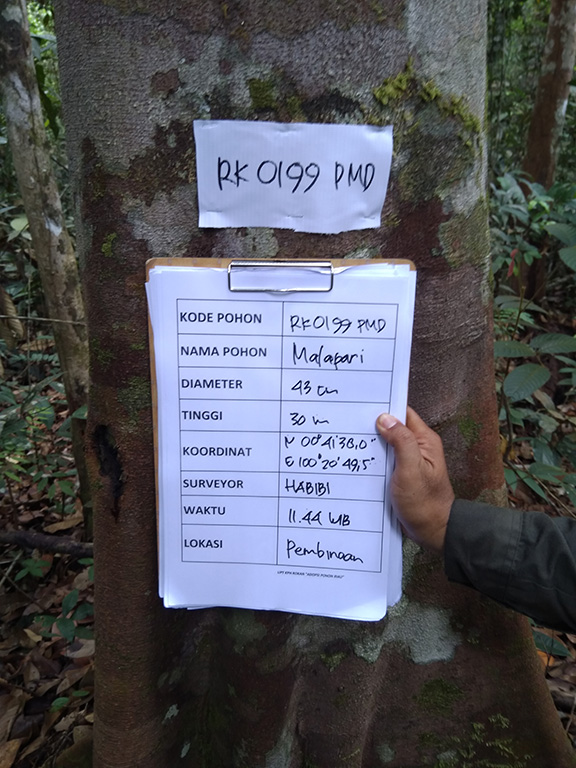 RK 0199 PMD
KODE POHON RK 0199 PMD
NAMA POHON Malapari
DIAMETER 43 cm
TINGGI 30 m
KOORDINAT N 00°41'38,0"
E 100°20'49,5"
SURVEYOR HABIBI
WAKTU 11.44 WIB
LOKASI Pembinaan
UPT KPH ROKAN "ADOPSI POHON RIAU"